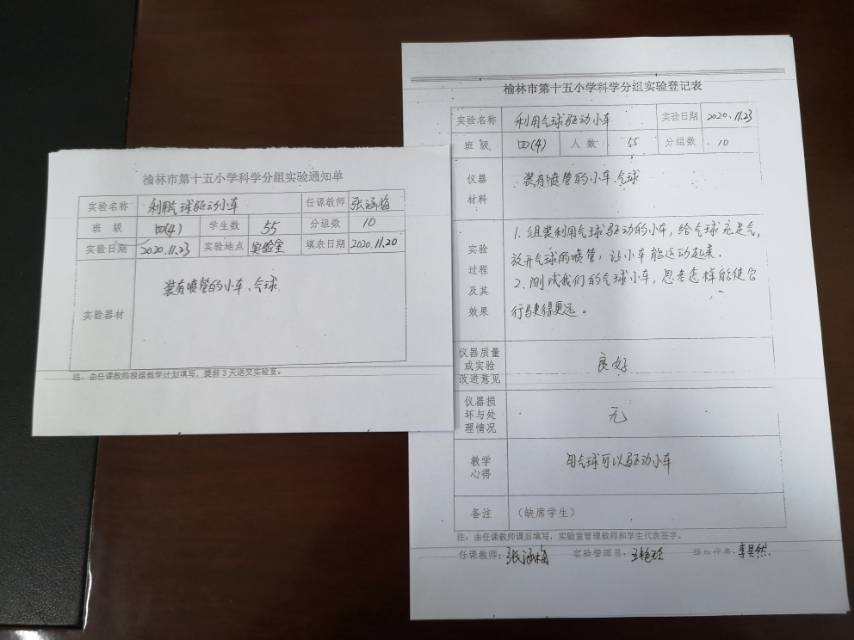 榆林市第十五小学科学分组实验通知单
实验名称 利用气球驱动小车 任课教师 张涵梅
班 级 四(4) 学生数 55 分组数 10
实验日期 2020.11.23 实验地点 实验室 填表日期 2020.11.20
实验器材 装有喷管的小车、气球
注：由任课教师根据教学计划填写，提前3天送交实验室。
榆林市第十五小学科学分组实验登记表
实验名称 利用气球驱动小车 实验日期 2020.11.23
班 级 四(4) 人 数 55 分组数 10
仪器
材料
装有喷管的小车、气球
实验
过程
及其
效果
1. 组装利用气球驱动的小车，给气球充足气，
放开气球的喷管，让小车能运动起来.
2. 测试我们的气球小车，思考怎样能使它
行驶得更远。
仪器质量
或实验
改进意见
良好
仪器损
坏与处
理情况
无
教学
心得
用气球可以驱动小车
备注 （缺席学生）
注：由任课教师课后填写，实验室管理教师和学生代表签字。
任课教师：张涵梅 实验管理员： 学生代表：